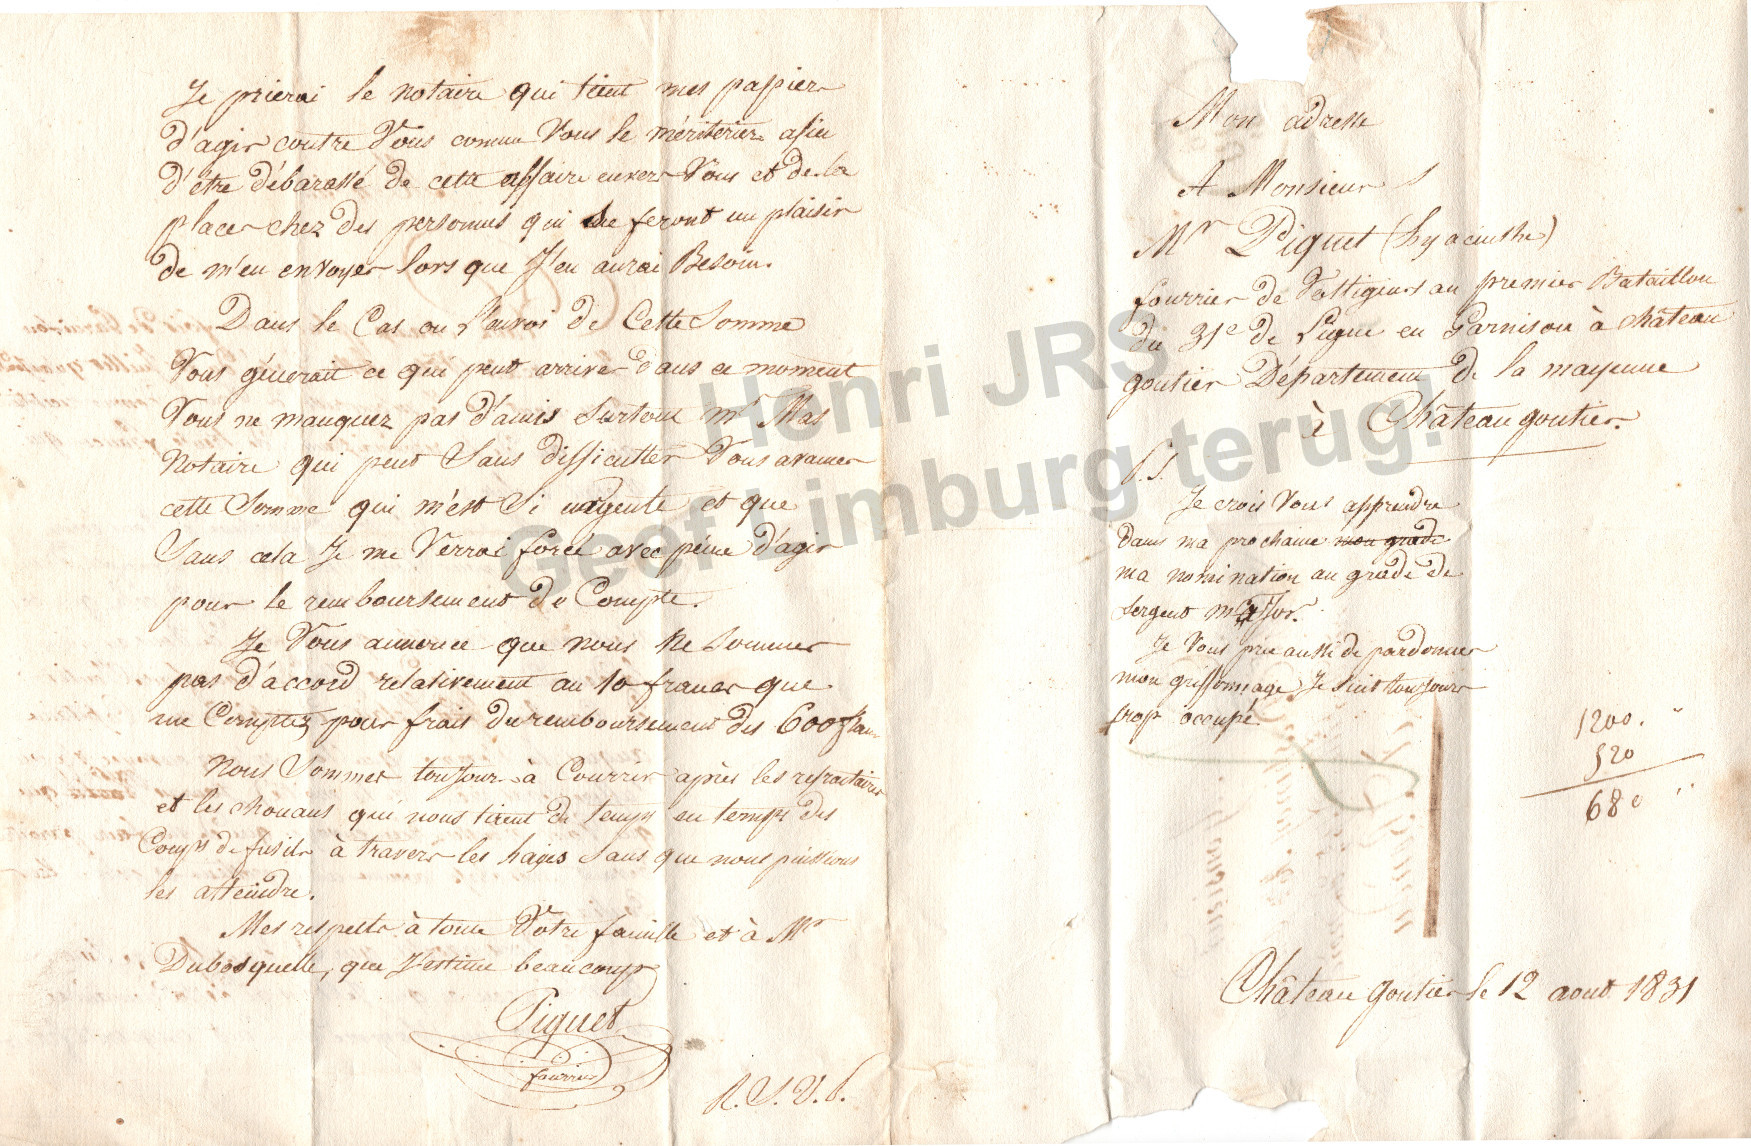 Je prierai le notaire qui tient mes papier
d'agir contre Vous comme Vous le mériteriez afin
d'être débarassé de cette affaire envers Vous et de la
placer chez des personnes qui se feront un plaisir
de m'en envoyer lors que J'en aurai Besoin.
Dans le Cas ou l'anvoi de Cette Somme
Vous génerait ce qui peut arriver dans ce moment
Vous ne manquez pas d'amis surtout Mr Mas
Notaire qui peut Sans difficulter Vous avancer
cette Somme qui m'est Si urgente et que
Sans cela Je me Verrai forcé avec péine d'agir
pour le remboursement de Compte.
Je Vous annonce que nous ne Sommes
pas d'accord rélativement au 10 francs que
me Comptez pour frais du remboursement des 600 francs
Nous Sommes toujours à Courrir après les refractaires
et les chouans qui nous tirent de temps en temps des
Coups de fusils à travers les hayes Sans que nous puissions
les atteindre.
Mes respects à toute Votre famille et à Mr
Dubosquelle, que J'estime beaucoup
Piquet
fourrier
R. S. V. P.
Mon adresse
A Monsieur
Mr Piquet (hyacinthe)
fourrier de Voltigeurs au premier Bataillon
du 31e de Ligne en Garnison à château
gontier Département de la mayenne
à Château gontier.
P. S.
Je crois Vous apprendre
dans ma prochaine mon grade
ma nomination au grade de
Sergent major.
Je Vous prie aussi de pardonner
mon griffonnage Je suis toujours
trop occupé.
1200.
520
680
Château gontier le 12 aout 1831
Henri JRS
Geef Limburg terug!